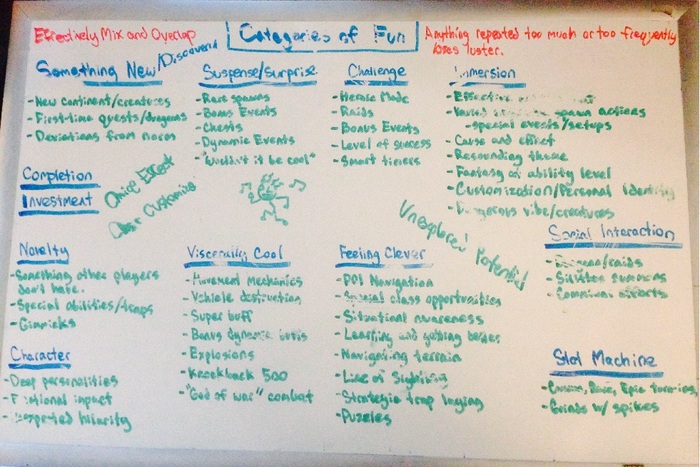 Effectively Mix and Overlap
Categories of Fun
Anything repeated too much or too frequently
loses luster.
Something New/Discovered
- New continent/creatures
- First-time quests/dungeons
- Deviations from norms
Suspense/Surprise
- Rare spawns
- Bonus Events
- Chests
- Dynamic Events
- "Wouldn't it be cool"
Challenge
- Heroic Mode
- Raids
- Bonus Events
- Level of success
- Smart timers
Immersion
- Effective
- Varied spawn actions
- special events/setups
- Cause and effect
- Resounding theme
- Fantasy on ability level
- Customization/Personal Identity
- Dangerous vibe/creatures
Completion
Investment
Choice Effect
Class Customize
Unexplored Potential
Social Interaction
/raids
- summons
- Communal efforts
Novelty
- Something other players
don't have.
- Special abilities/traps
- Gimmicks
Viscerally Cool
- Movement Mechanics
- Vehicle destruction
- Super buff
- Bonus dynamic
- Explosions
- Knockback 500
- "God of war" combat
Feeling Clever
- POI Navigation
- Special class opportunities
- Situational awareness
- Learning and getting better
- Navigating terrain
- Line of Sighting
- Strategic trap laying
- Puzzles
Character
- Deep personalities
- Emotional impact
- Unexpected hilarity
Slot Machine
- Common, Rare, Epic
- Grinds w/ spikes